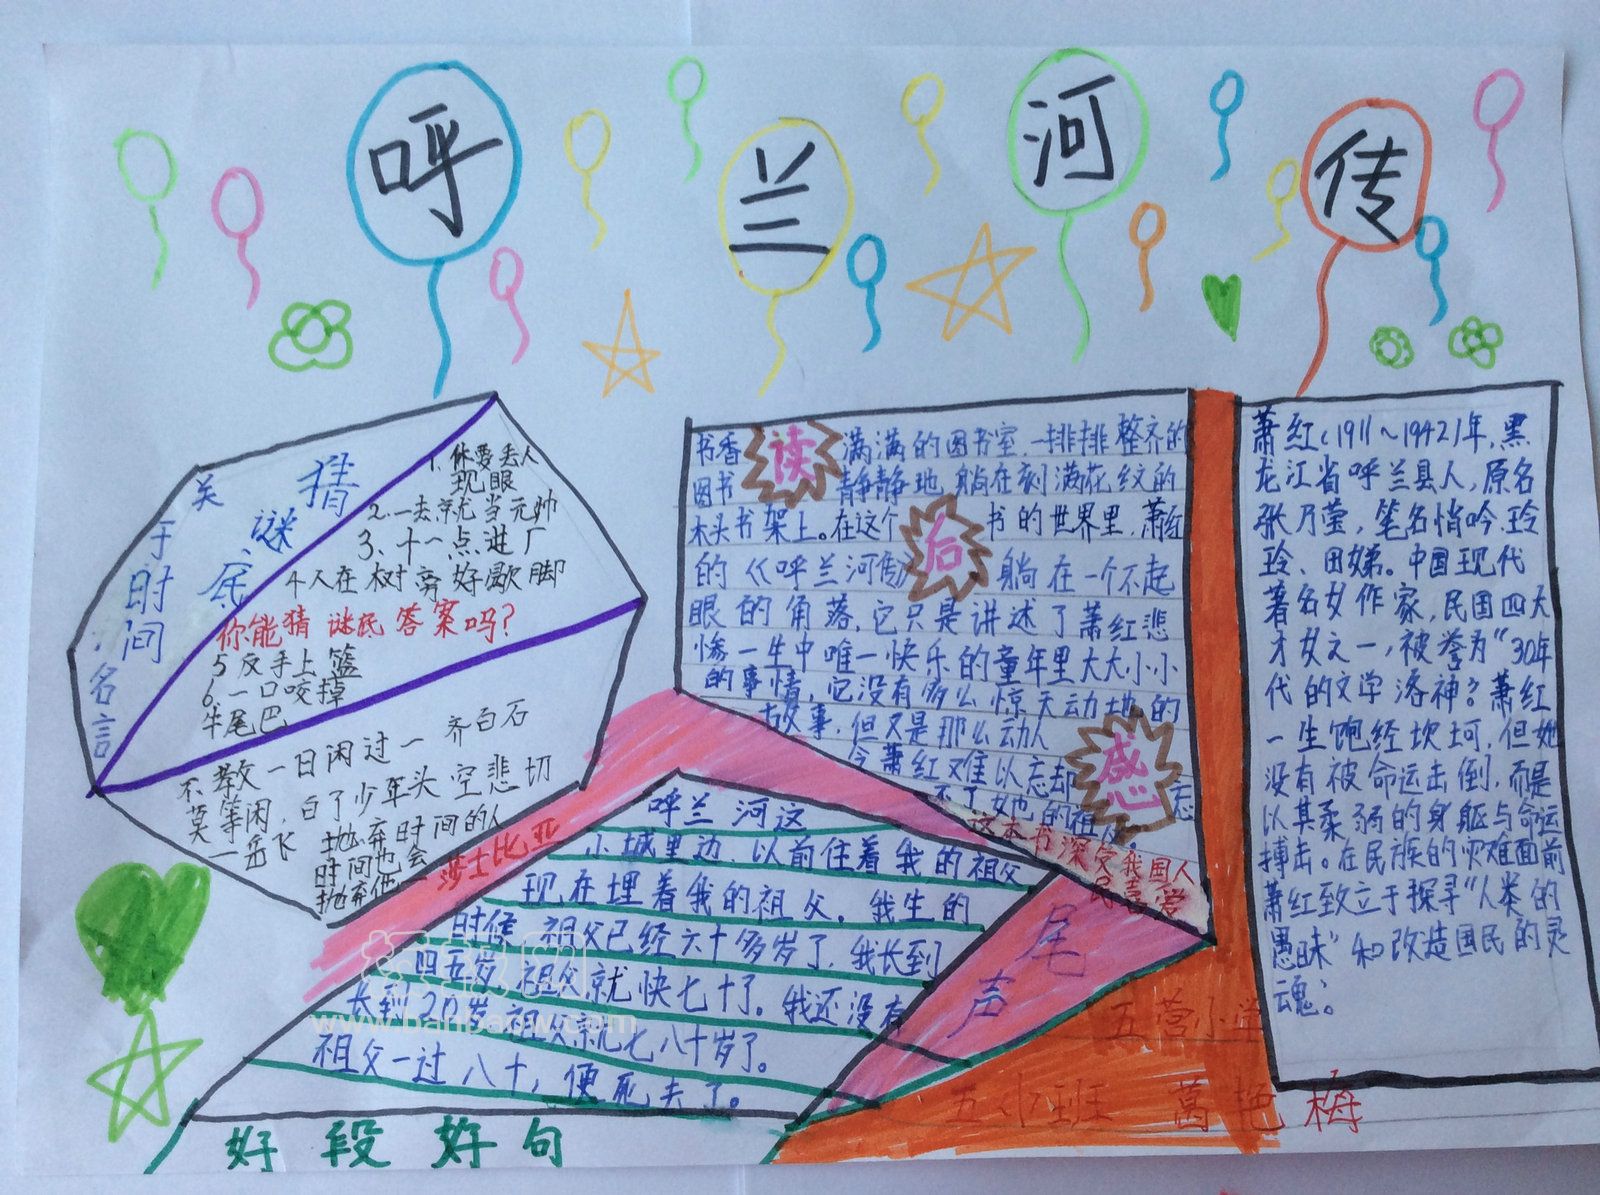 呼兰河传
猜谜底
关于时间名言
1、休要丢人
现眼
2.一去就当元帅
3、十一点进厂
4人在树旁好歇脚
你能猜谜民答案吗?
5反手上篮
6.一口咬掉
牛尾巴
不教一日闲过一齐白石
莫等闲,白了少年头空悲切
一岳飞
抛弃时间的人
时间也会
抛弃他一
莎士比亚
读后感
书香满满的图书室,一排排整齐的
图书静静地躺在刻满花纹的
木头书架上。在这个书的世界里,萧红
的《呼兰河传》躺在一个不起
眼的角落,它只是讲述了萧红悲
惨一生中唯一快乐的童年里大大小小
的事情,它没有多么惊天动地的
故事,但又是那么动人
令萧红难以忘却
不了她的祖父。
这本书深受我国人
民喜爱
萧红(1911~1942)年,黑
龙江省呼兰县人,原名
张乃莹,笔名悄吟,玲
玲、田娣。中国现代
著名女作家,民国四大
才女之一,被誉为"30年
代的文学洛神?萧红
一生饱经坎坷,但她
没有被命运击倒,而是
以其柔弱的身躯与命运
搏击。在民族的灾难面前
萧红致立于探寻"人类的
愚昧"和改造国民的灵
魂。
呼兰河这
小城里边,以前住着我的祖父
现在埋着我的祖父。我生的
时候祖父已经六十多岁了,我长到
四五岁,祖父就快七十了。我还没有
长到20岁祖父就七八十岁了。
祖父一过八十,便死去了。
尾声
好段好句
五营小学
班
梅
www.banbaow.com